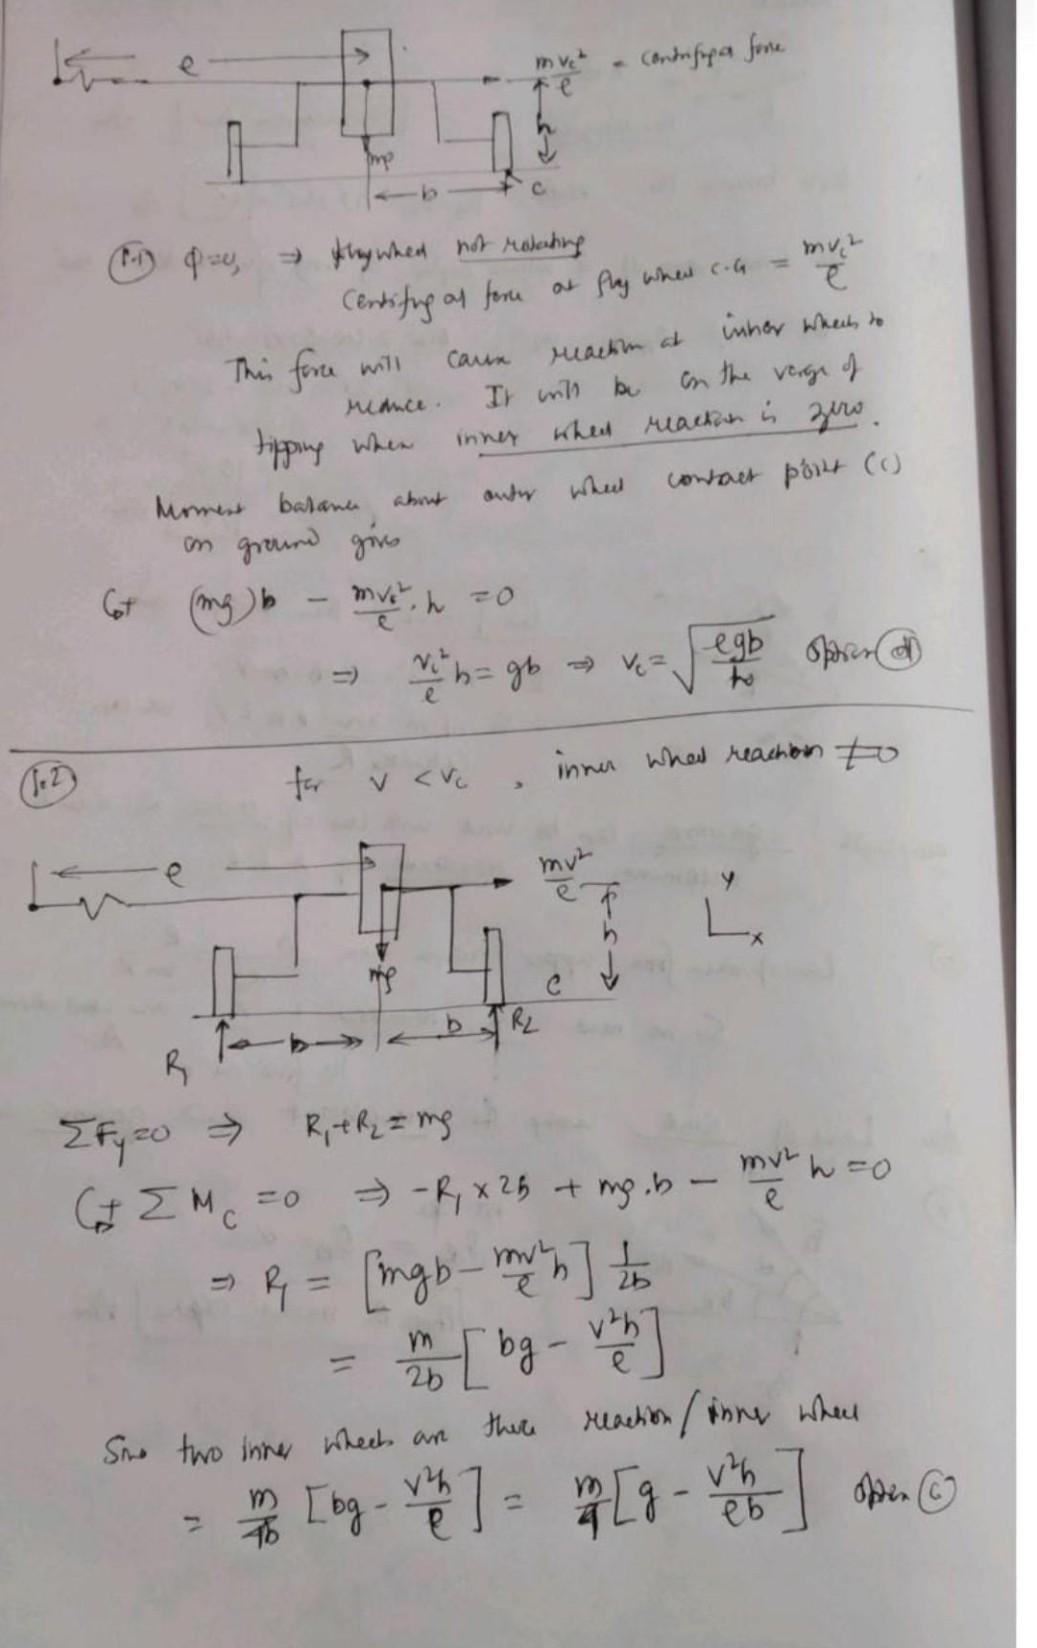 e
mv_c²/e = centrifugal force
h
mg
b
C
(1.1) φ=0, ⇒ flywheel not rotating
Centrifugal force at fly wheel C.G = mv_c²/e
This force will cause reaction at inner wheels to
reduce. It will be on the verge of
tipping when inner wheel reaction is zero.
Moment balance about outer wheel contact point (C)
on ground gives
(mg)b - mv_c²/e . h = 0
⇒ v_c²/e h = gb ⇒ v_c = √(egb/h) option (d)
(1.2) for v < v_c, inner wheel reaction ≠0
e
mv²/e
y
x
h
mg
C
b
b
R2
R1
ΣFy=0 ⇒ R1+R2=mg
ΣM_C =0 ⇒ -R1×2b + mg.b - mv²/e h =0
⇒ R1 = [mgb - mv²/e h] 1/2b
= m/2b [bg - v²h/e]
two inner wheels are there reaction/inner wheel
= m/4b [bg - v²h/e] = m/4 [g - v²h/eb] option (c)